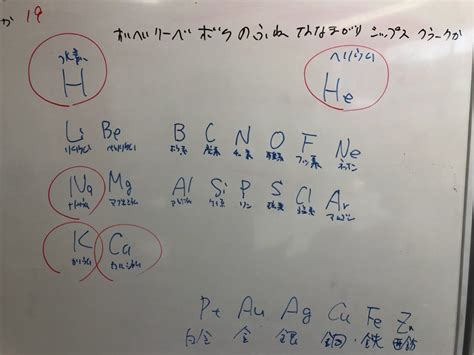 か 19
すいへいリーベ ボクのふね なな まがり シップス クラークか
水素 ヘリウム
H He
Li Be B C N O F Ne
リチウム ベリリウム ホウ素 炭素 チッ素 酸素 フッ素 ネオン
Na Mg Al Si P S Cl Ar
ナトリウム マグネシウム アルミニウム ケイ素 リン 硫黄 塩素 アルゴン
K Ca
カリウム カルシウム
Pt Au Ag Cu Fe Zn
白金 金 銀 銅 鉄 亜鉛